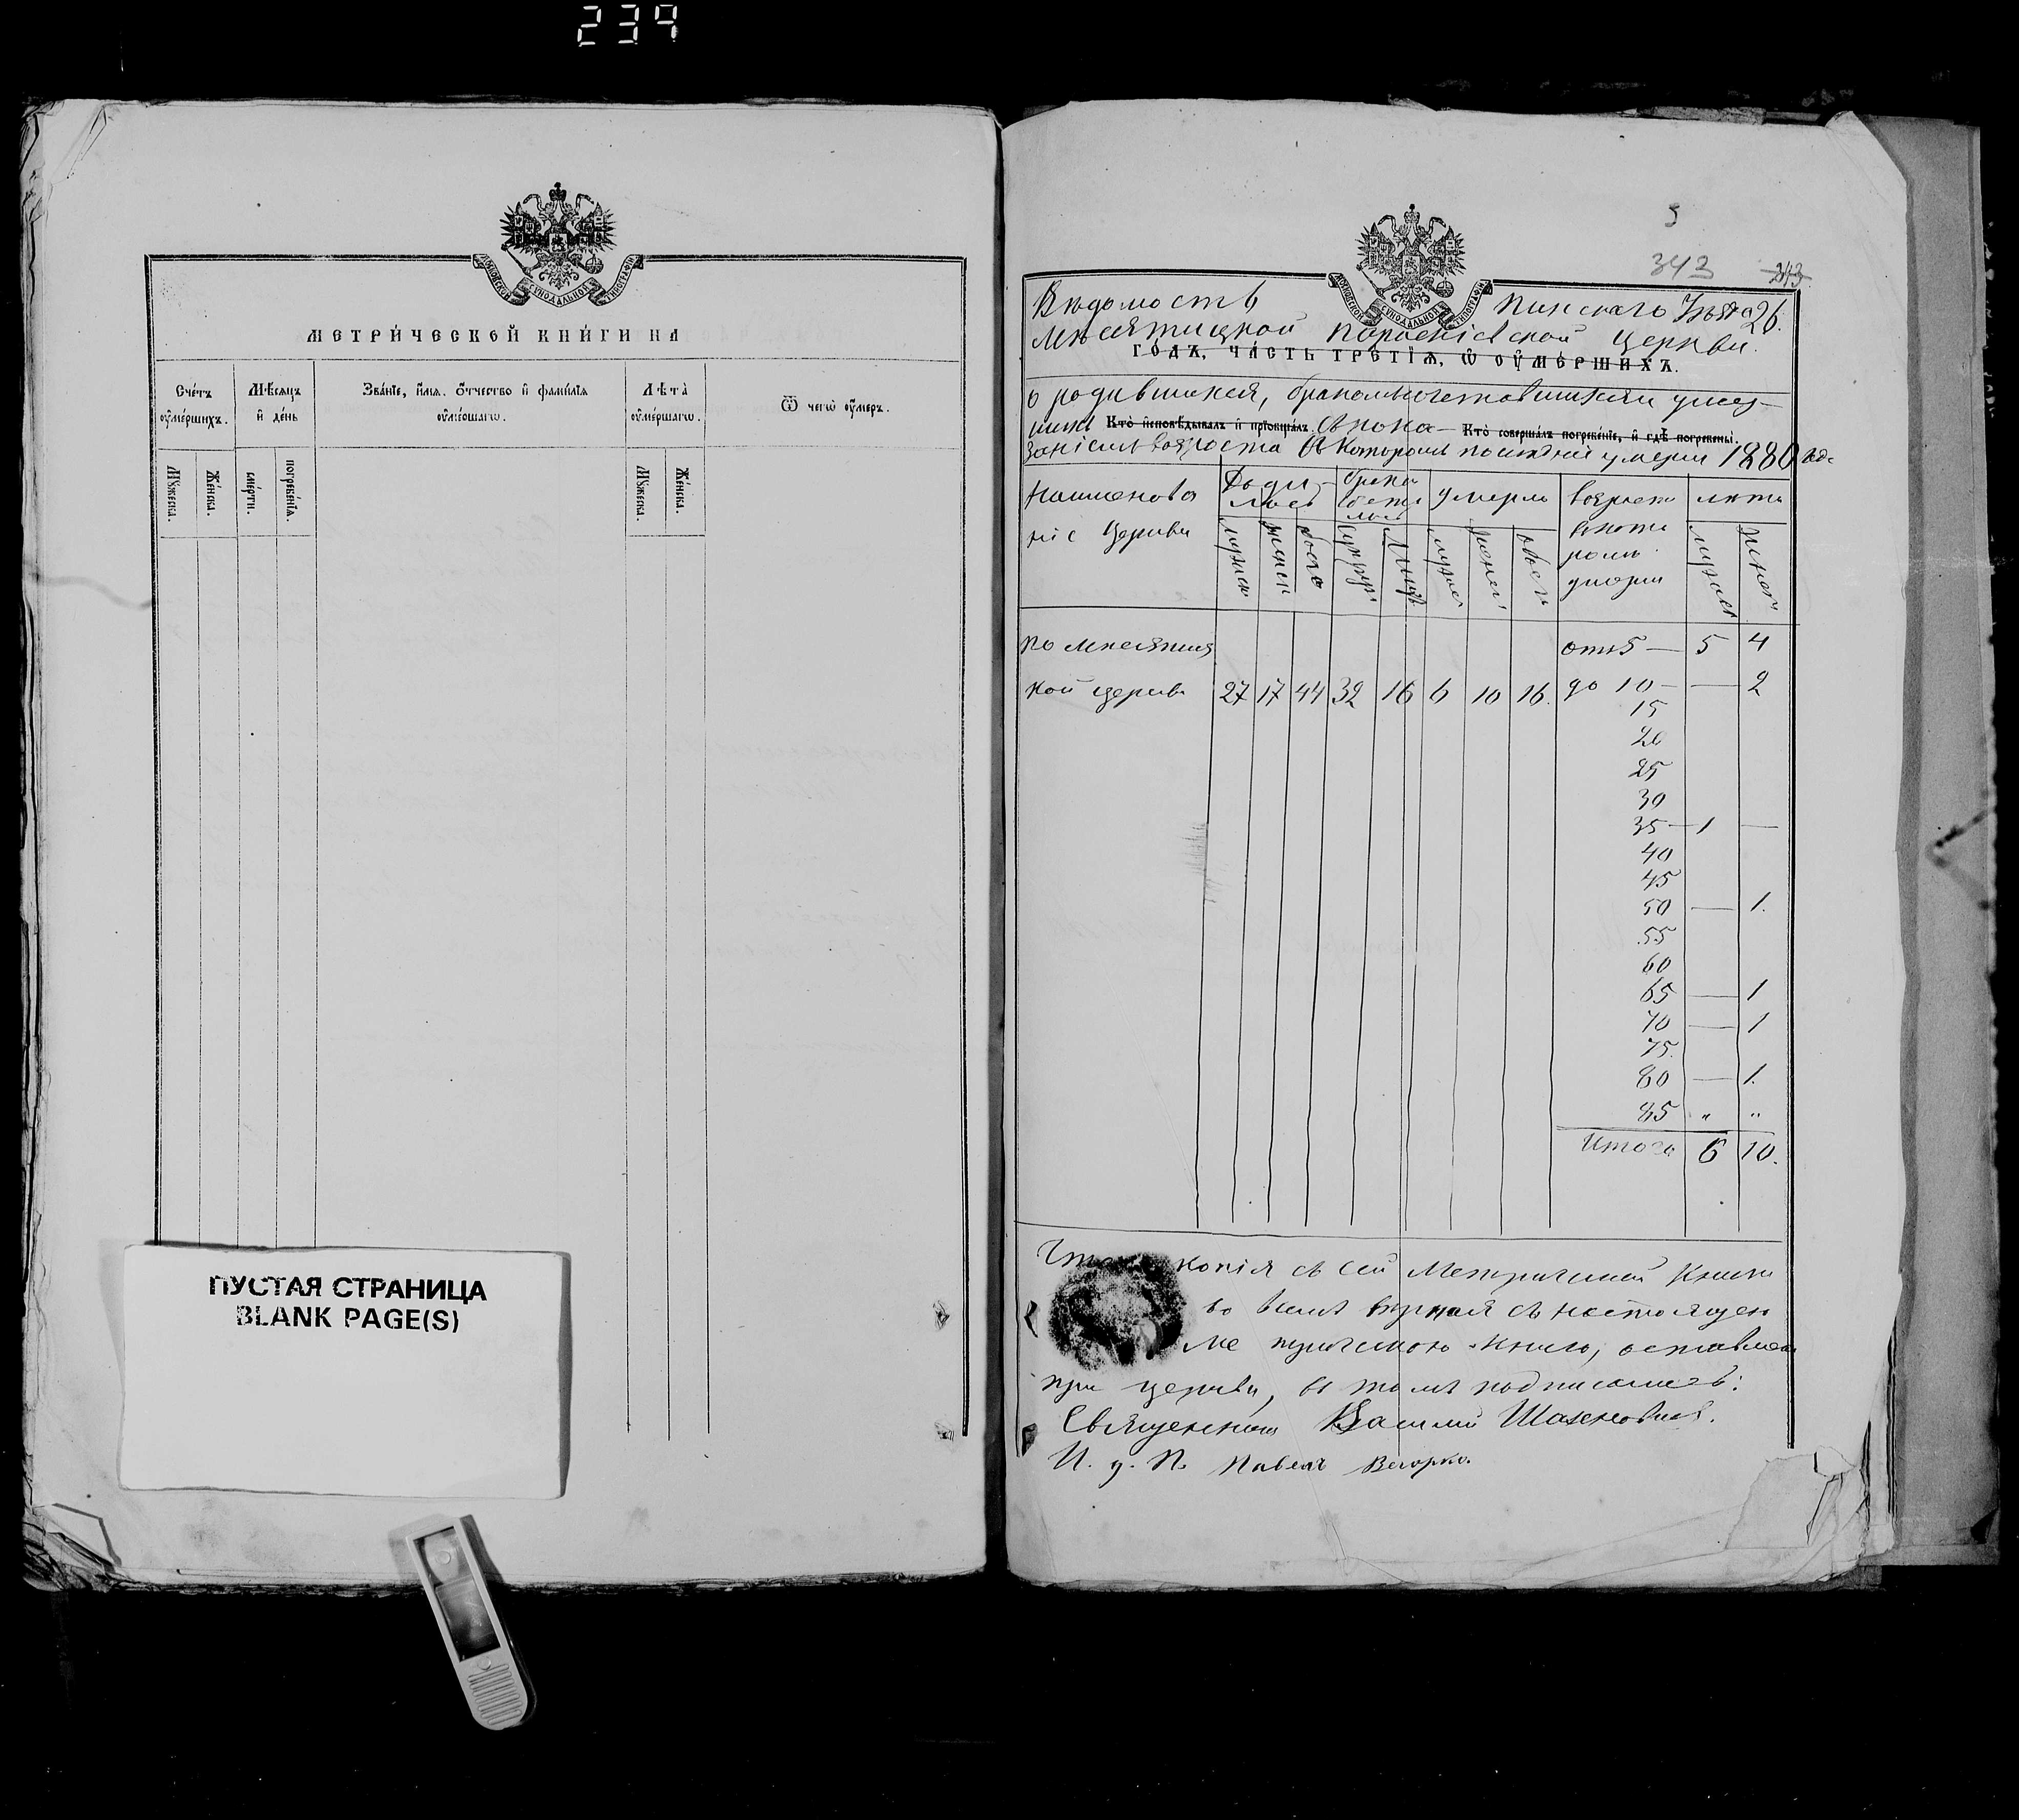 239
МОСКОВСКОЙ СѴНОДАЛЬНОЙ ТИПОГРАФІИ
МЕТРИ́ЧЕСКОЙ КНИ́ГИ НА
Сче́тъ ᲂу҆ме́ршихъ.
Мѣ́сѧцъ и҆ де́нь
Зва́нїе, и҆́мѧ. ѻ҆́тчество и҆ фами́лїѧ ᲂу҆ме́ршагѡ.
Лѣ̑та̀ ᲂу҆ме́ршагѡ.
Ѿ чегѡ̀ ᲂу҆́меръ.
Мꙋ́жеска.
Же́нска.
сме́рти.
погребе́нїѧ.
Мꙋ́жеска.
Же́нска.
ПУСТАЯ СТРАНИЦА
BLANK PAGE(S)
5
343
243
МОСКОВСКОЙ СѴНОДАЛЬНОЙ ТИПОГРАФІИ
Вѣдомость Пинскаго Уѣзда 26.
Мѣсятицкой церкви.
ГО́ДЪ, ЧА́СТЬ ТРЕ́ТЇѦ, Ѡ҆ ОУ҆МЕ́РШИХЪ.
о родившихся, бракомъ сочетавшихся и умер-
шихъ Кто̀ и҆сповѣ́дывалъ и҆ прїѡбща́лъ. съ пока- Кто̀ соверша́лъ погребе́нїе, и҆ гдѣ̀ погребены̀.
заніемъ возроста въ которомъ послѣдніе умерли 1880 года
Наименова
ніе Церкви
Роди-
лось
брако
сочета
лось
умерло
возрастъ
въ кото
ромъ
умерли
лѣта
мужск
женск
обоего
супруж
Лицъ
мужск
женск
обоего
мужск
женск
по Мѣсятиц от 5 — 5 4
кой церкви 27 17 44 32 16 6 10 16. до 10 — — 2
15
20
25
30
35 — 1 —
40
45
50 — 1.
55
60
65 — 1
70 — 1
75.
80 — 1.
85 " "
Итого 6 10.
копія съ сей Метрической Книги
во всемъ вѣрная съ настоящею
ме трическою книгою, оставлен
при церкви, въ томъ подписались:
Священникъ Василий Шахнович.
И. д. П. Павелъ